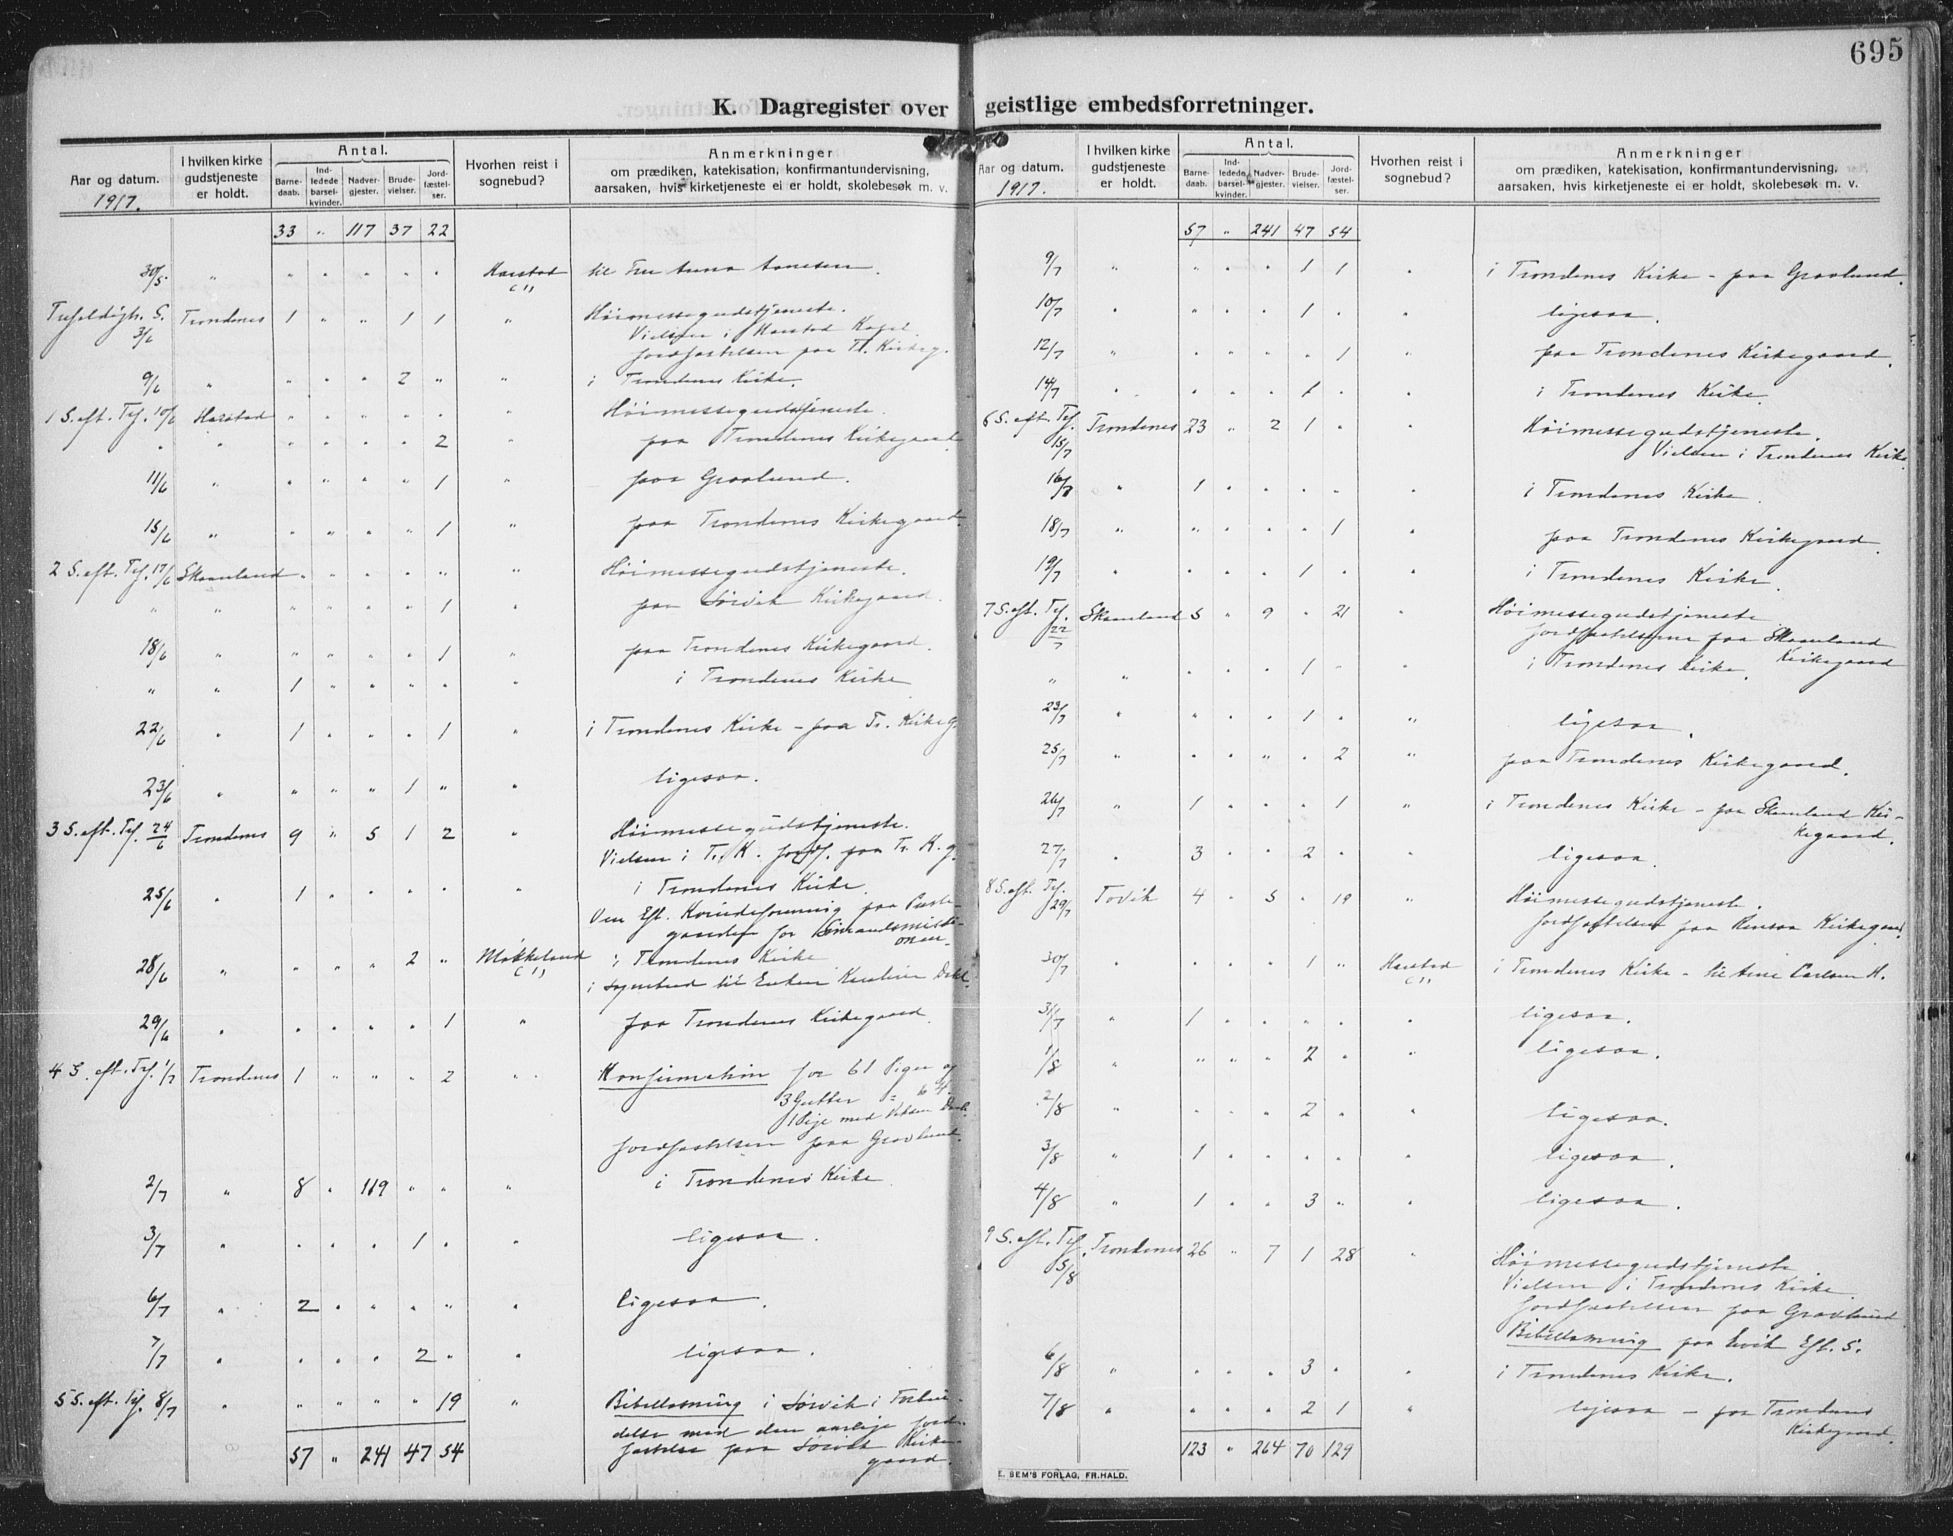 695
K. Dagregister over geistlige embedsforretninger.
Aar og datum. 1917.
I hvilken kirke gudstjeneste er holdt.
Antal.
Barnedaab.
Indledede barselkvinder.
Nadvergjester.
Brudevielser.
Jordfæstelser.
Hvorhen reist i sognebud?
Anmerkninger
om prædiken, katekisation, konfirmantundervisning,
aarsaken, hvis kirketjeneste ei er holdt, skolebesøk m. v.
33 " 117 37 22
30/5 " " " " " " Harstad (1) til Fru Anna
S. 3/6 Trondenes 1 " " 1 1 " Høimessegudstjeneste.
Vielsen i Harstad Kapel.
Jordfæstelsen paa Tr. Kirkeg.
9/6 " " " " 2 " " i Trondenes Kirke.
1 S. eft. Trf. 10/6 Harstad " " " " " " Høimessegudstjeneste.
" " " " " " 2 " paa Trondenes Kirkegaard.
11/6 " " " " " 1 " paa Gravlund.
15/6 " " " " " 1 " paa Trondenes Kirkegaard.
2 S. eft. Trf. 17/6 Skaanland " " " " " " Høimessegudstjeneste.
" " " " " " 1 " paa Sørvik Kirkegaard.
18/6 " " " " " 1 " paa Trondenes Kirkegaard.
" " 1 " " " " " i Trondenes Kirke
22/6 " 1 " " " 1 " i Trondenes Kirke – paa Tr. Kirkeg.
23/6 " " " " 1 " " ligesaa.
3 S. eft. Trf. 24/6 Trondenes 9 " 5 1 2 " Høimessegudstjeneste.
Vielsen i Tr. K. Jordf. paa Tr. K.g.
25/6 " 1 " " " " " i Trondenes Kirke.
Em. Eft. Kvindeforening paa Preste-
gaarden for
28/6 " " " " 2 " Møkkeland (1) i Trondenes Kirke
i sognebud til Enken
29/6 " " " " " 1 " paa Trondenes Kirkegaard.
4 S. eft. Trf. 1/7 Trondenes 1 " " " 2 " Konfirmation for 61 Piger og
3 Gutter
1 Pige med
Jordfæstelsen paa Gravlund.
2/7 " 8 " 119 " " " i Trondenes Kirke
3/7 " " " " 1 " " ligesaa.
6/7 " 2 " " " " " ligesaa.
7/7 " " " " 2 " " ligesaa.
5 S. eft. Trf. 8/7 " " " " " 19 " Bibellæsning i Sørvik i Forbin-
delse med den aarlige Jord-
fæstelse paa Sørvik Kirke-
gaard.
57 " 241 47 54
Aar og datum. 1917.
I hvilken kirke gudstjeneste er holdt.
Antal.
Barnedaab.
Indledede barselkvinder.
Nadvergjester.
Brudevielser.
Jordfæstelser.
Hvorhen reist i sognebud?
Anmerkninger
om prædiken, katekisation, konfirmantundervisning,
aarsaken, hvis kirketjeneste ei er holdt, skolebesøk m. v.
57 " 241 47 54
9/7 " " " " 1 1 " i Trondenes Kirke – paa Gravlund.
10/7 " " " " 1 " " ligesaa.
12/7 " " " " " 1 " paa Trondenes Kirkegaard.
14/7 " " " " 1 " " i Trondenes Kirke.
6 S. eft. Trf. 15/7 Trondenes 23 " 2 1 " " Høimessegudstjeneste.
Vielsen i Trondenes Kirke.
16/7 " 1 " " " " " i Trondenes Kirke.
18/7 " " " " " 1 " paa Trondenes Kirkegaard.
19/7 " " " " 1 " " i Trondenes Kirke.
7 S. eft. Trf. 22/7 Skaanland 5 " 9 " 21 " Høimessegudstjeneste
Jordfæstelserne paa Skaanland
Kirkegaard
" " " " " 1 " " i Trondenes Kirke.
23/7 " " " " 1 " " ligesaa.
25/7 " " " " " 2 " paa Trondenes Kirkegaard.
26/7 " 1 " " " 1 " i Trondenes Kirke – paa Skaanland Kir-
kegaard.
27/7 " 3 " " 2 " " ligesaa.
8 S. eft. Trf. 29/7 Tovik 4 " 5 " 19 " Høimessegudstjeneste.
Jordfæstelsen paa Rensaa Kirkegaard.
30/7 " " " " 1 " Harstad (1) i Trondenes Kirke – til Carlsen H.
31/7 " 1 " " " " " ligesaa.
1/8 " " " " 2 " " ligesaa.
2/8 " " " " 2 " " ligesaa.
3/8 " 1 " " " " " ligesaa.
4/8 " 1 " " 3 " " ligesaa.
9 S. eft. Trf. 5/8 Trondenes 26 " 7 1 28 " Høimessegudstjeneste
Vielsen i Trondenes Kirke.
Jordfæstelsen paa Gravlund.
Bibellæsning paa Ervik Eft. S.
6/8 " " " " 3 " " i Trondenes Kirke.
7/8 " " " " 2 1 " ligesaa – paa Trondenes
Kirkegaard.
123 " 264 70 129
E. SEM'S FORLAG, FR.HALD.